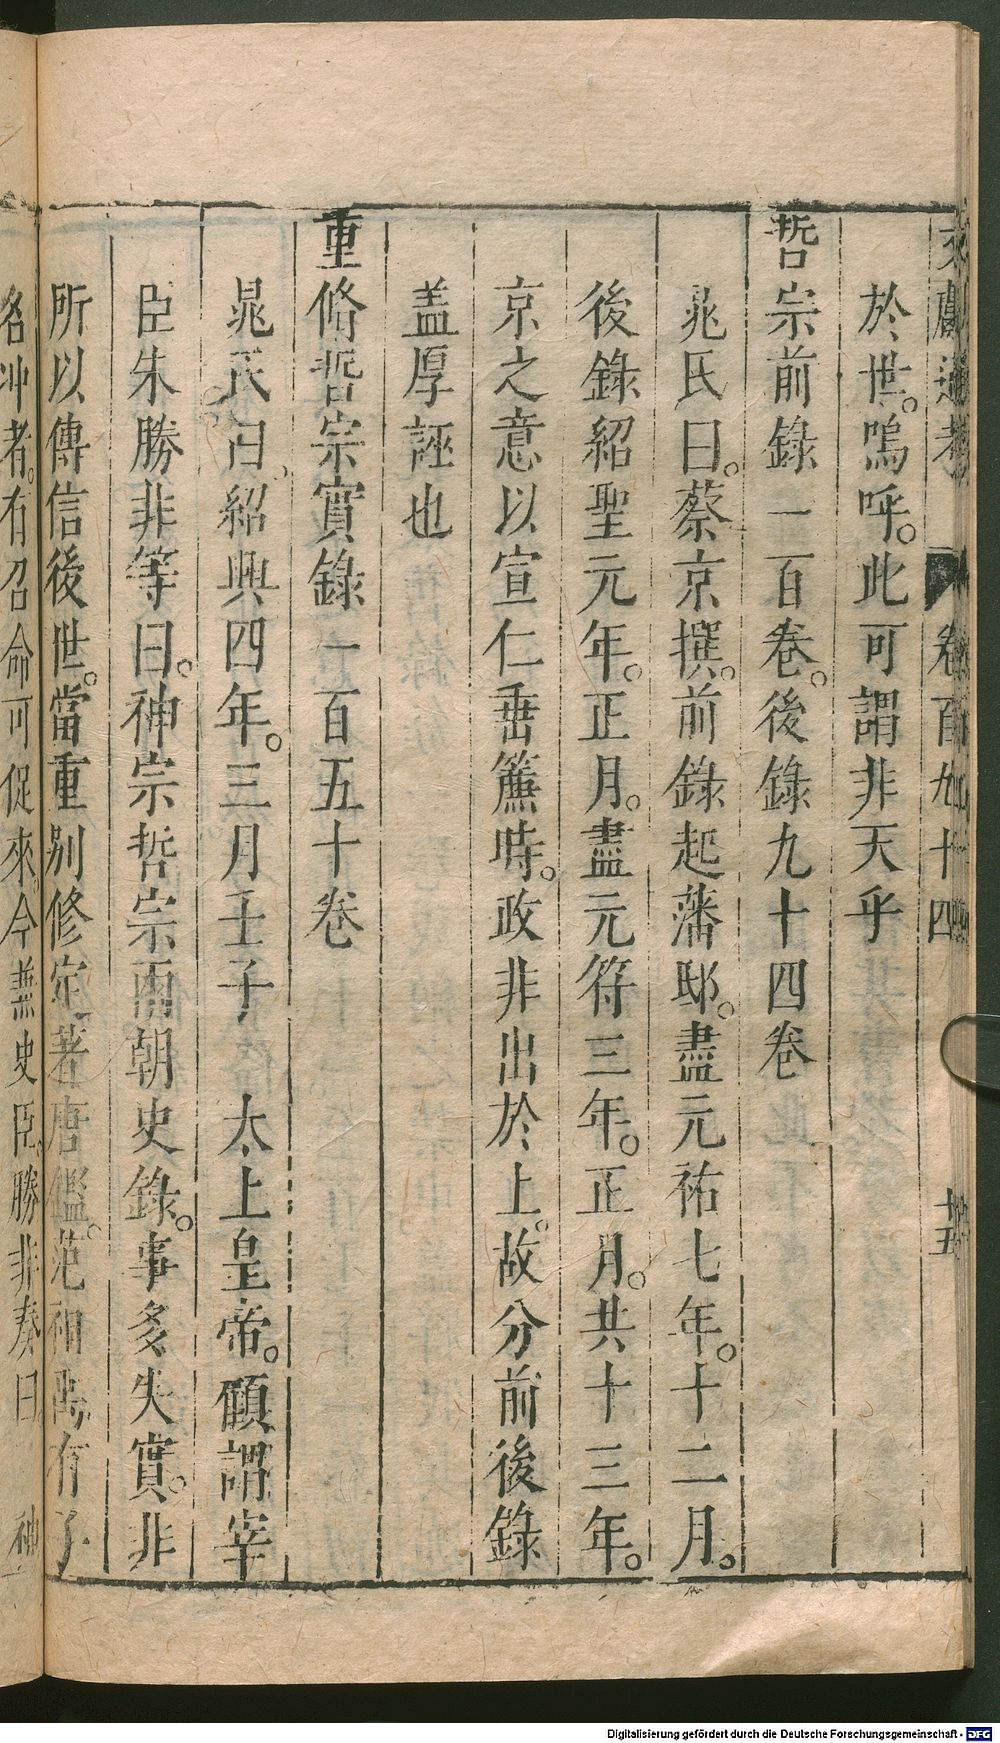 文獻通考　卷百九十四　十五
於世。嗚呼。此可謂非天乎
哲宗前錄一百卷。後錄九十四卷
晁氏曰。蔡京撰。前錄起藩邸。盡元祐七年。十二月。
後錄紹聖元年。正月。盡元符三年。正月。共十三年。
京之意以宣仁垂簾時。政非出於上。故分前後錄
盖厚誣也
重脩哲宗實錄一百五十卷
晁氏曰紹興四年。三月壬子　太上皇帝。顧謂宰
臣朱勝非等曰。神宗哲宗兩朝史錄。事多失實。非
所以傳信後世。當重別修定。著唐鑑。范祖禹有子
名冲者。有召命可促來。今兼史臣。勝非奏曰。神
Digitalisierung gefördert durch die Deutsche Forschungsgemeinschaft - DFG